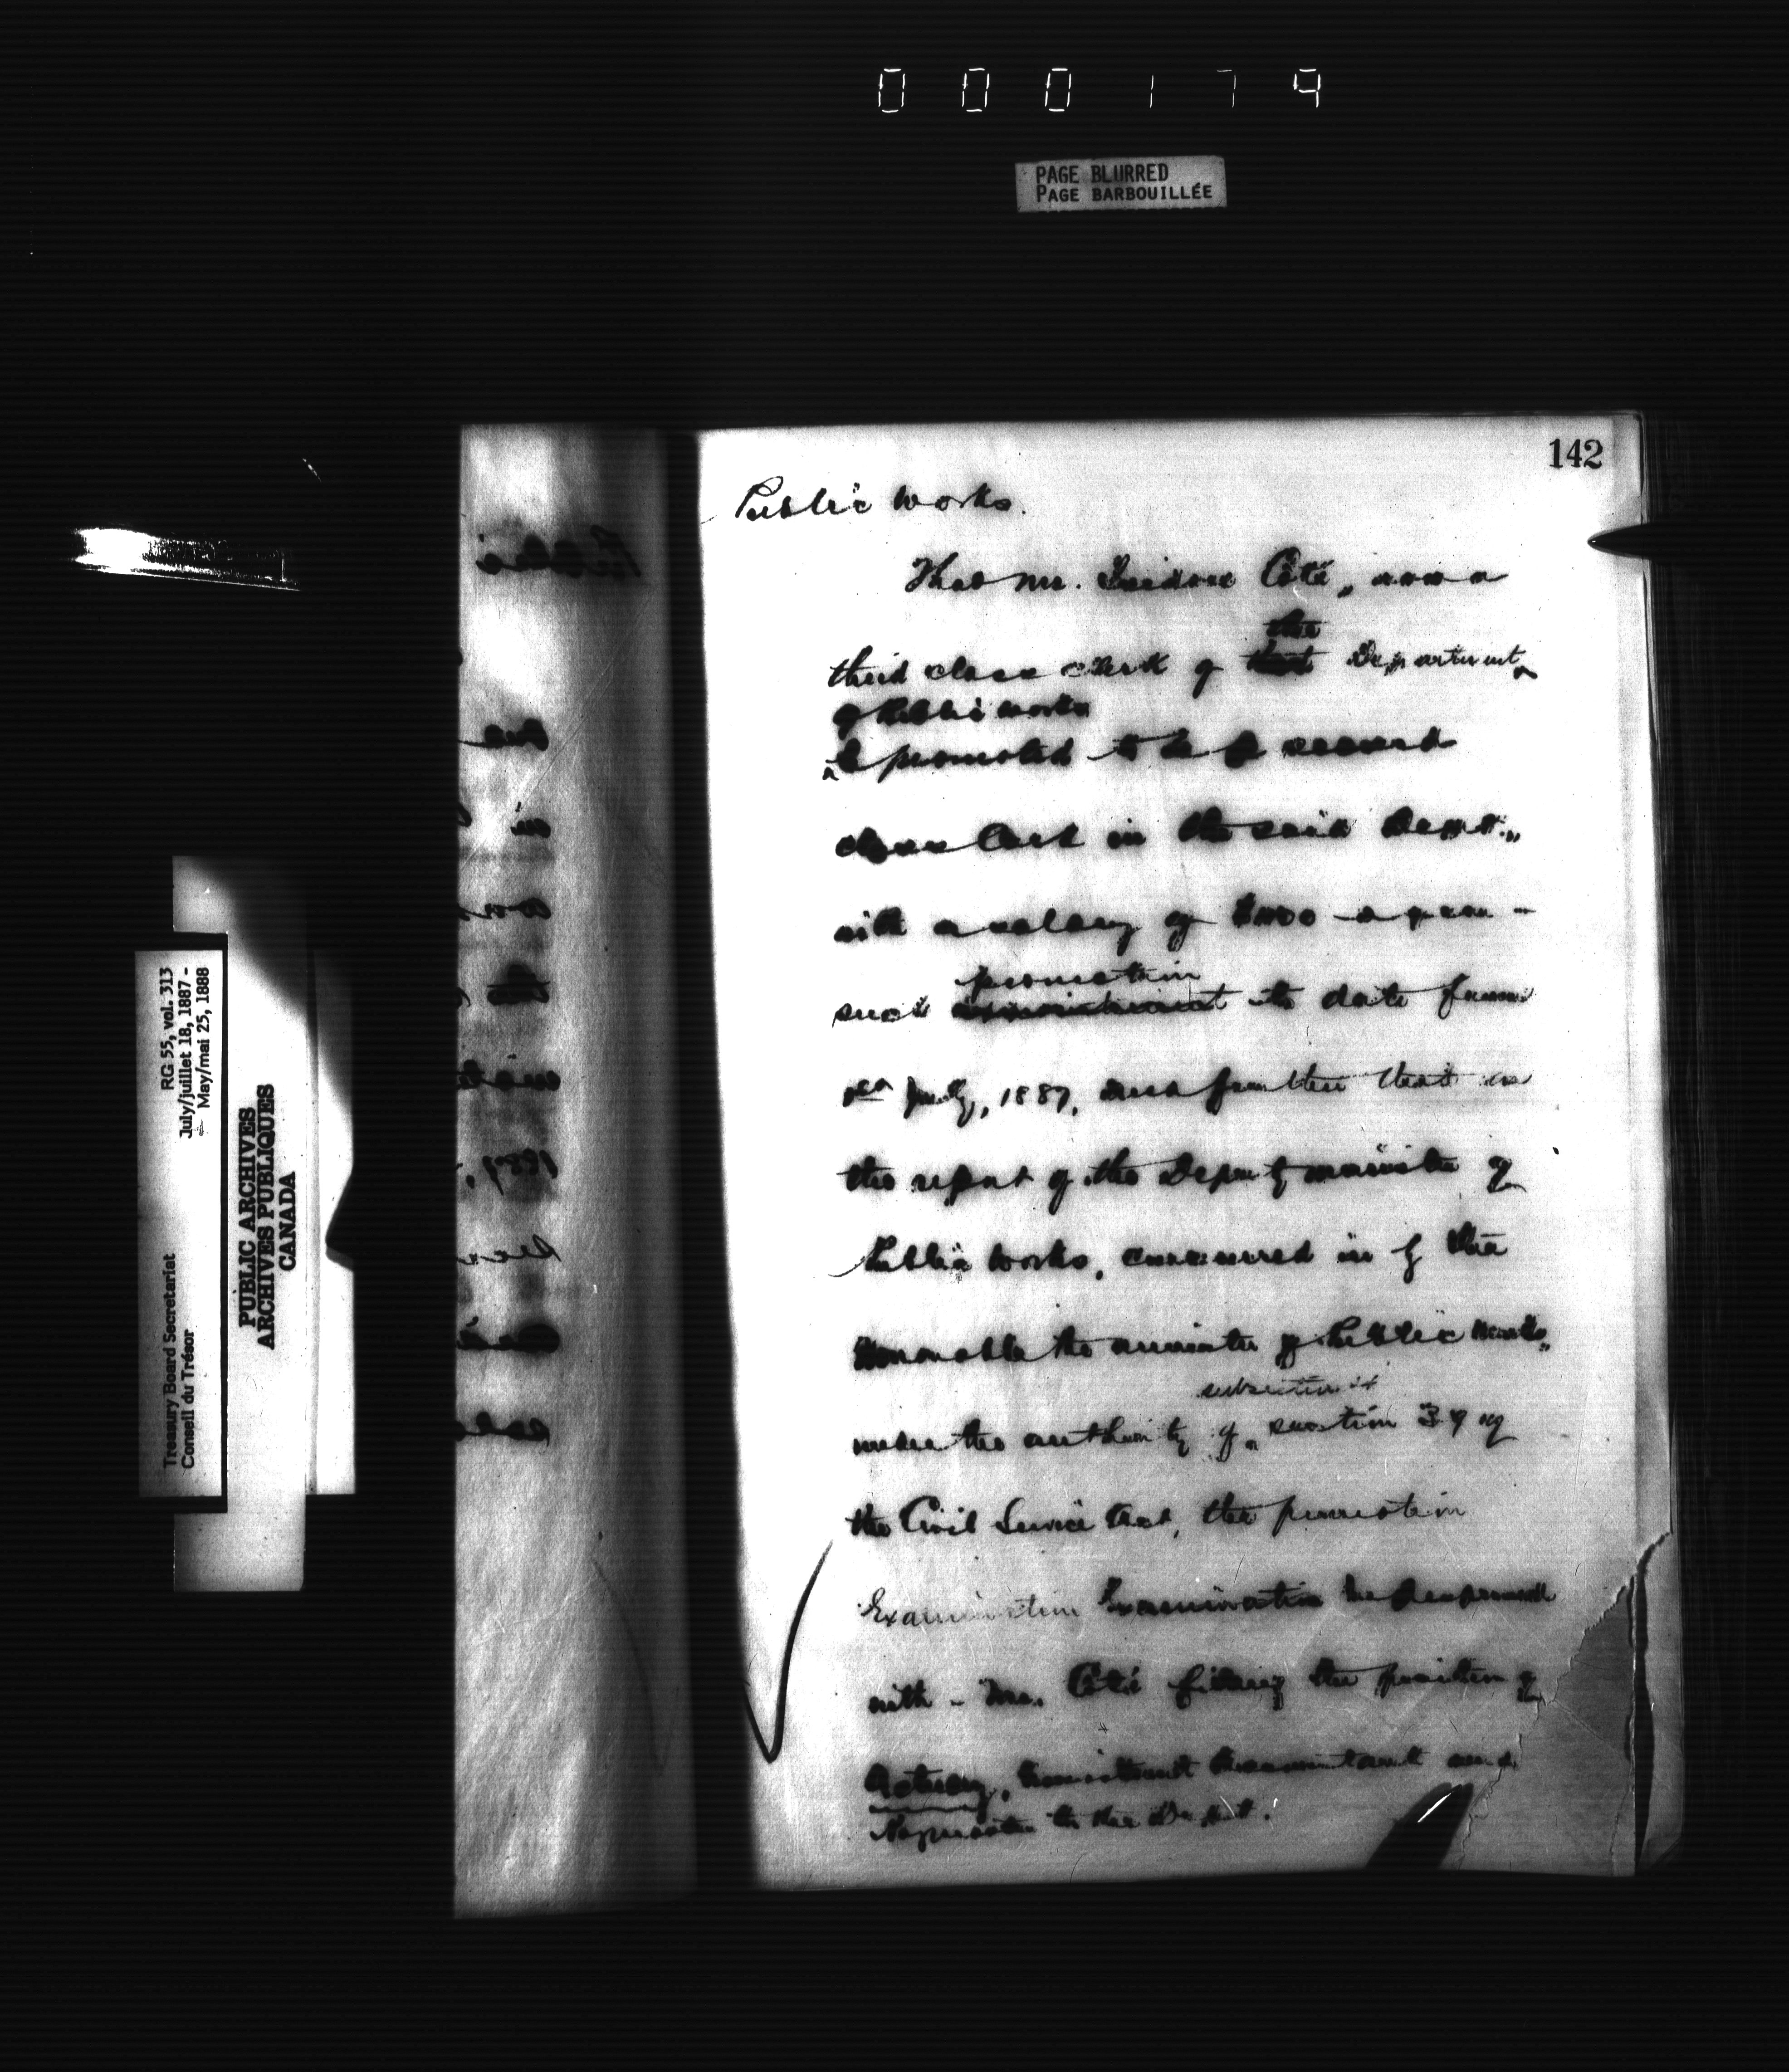 000179
PAGE BLURRED
PAGE BARBOUILLÉE
142
Public Works.
That Mr. Isidore Côté, now a
the
third class clerk of that Department
of Public Works
be promoted to be a second
class Clerk in the said Dept.,
with a salary of $1100 a year -
promotion
such appointment to date from
1st July, 1887, and further that on
the report of the Deputy Minister of
Public Works, concurred in by the
Honorable the Minister of Public Works,
subsection
under the authority of section 39 of
the Civil Service Act, the promotion
Examination Examination be dispensed
with - Mr. Côté filling the position of
Actuary, Assistant Accountant and
to the Dept.
Public
1887,
RG 55, vol. 313
July/juillet 18, 1887 -
May/mai 25, 1888
Treasury Board Secretariat
Conseil du Trésor
PUBLIC ARCHIVES
ARCHIVES PUBLIQUES
CANADA